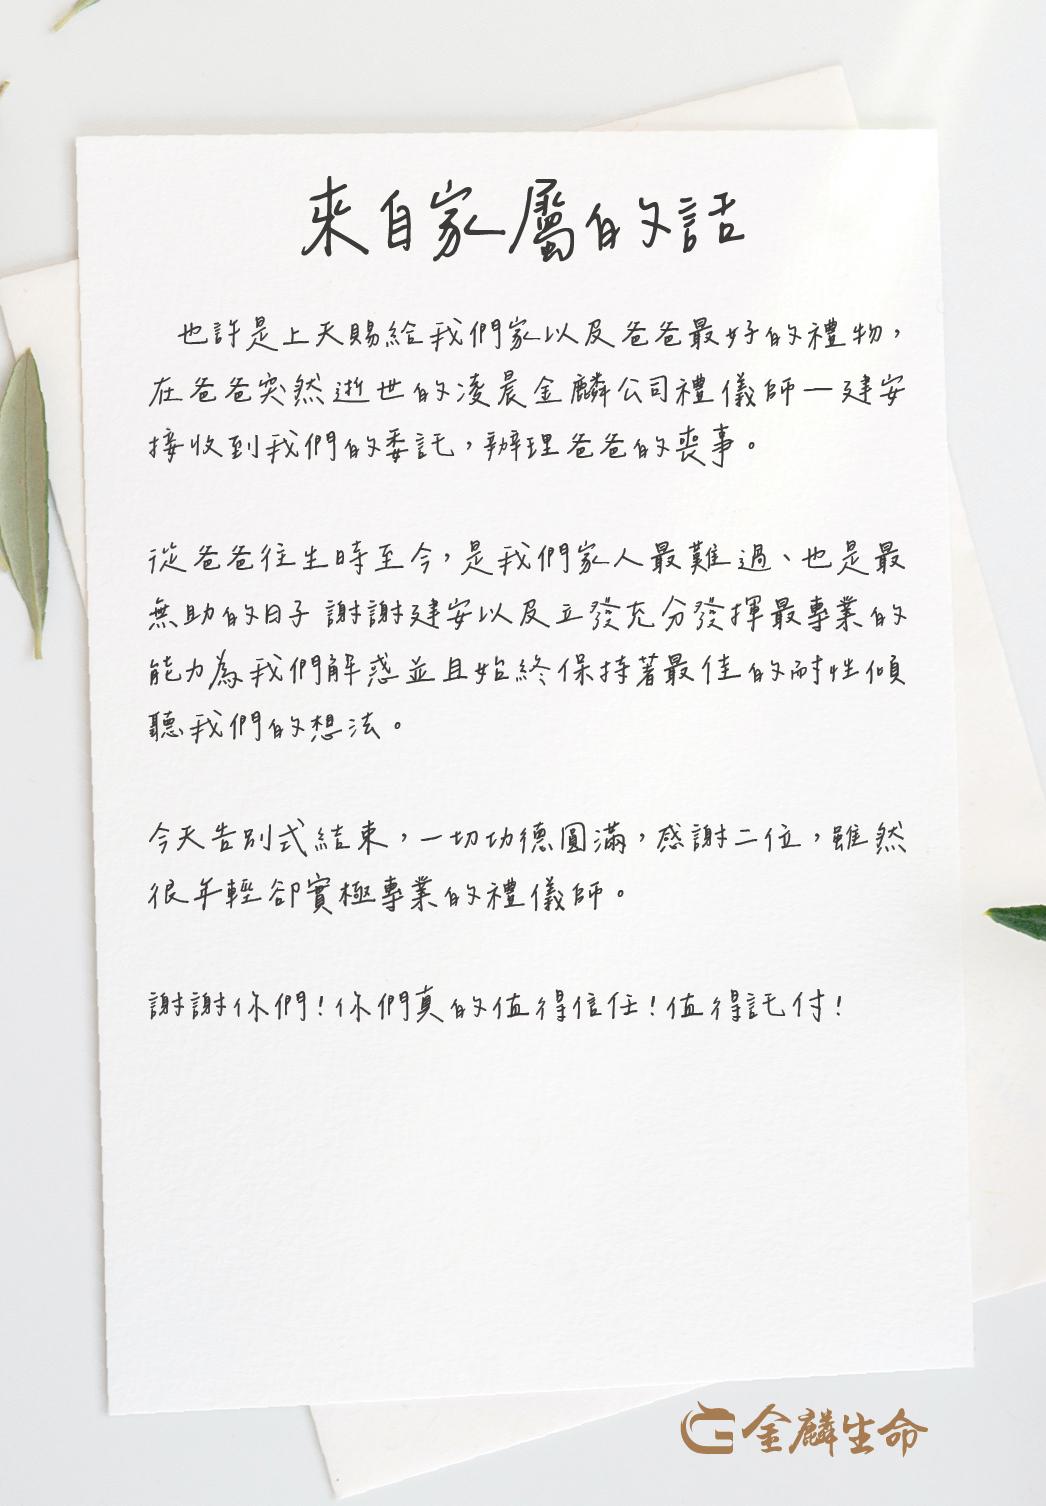 來自家屬的話
也許是上天賜給我們家以及爸爸最好的禮物，
在爸爸突然逝世的凌晨金麟公司禮儀師一建安
接收到我們的委託，辦理爸爸的喪事。
從爸爸往生時至今，是我們家人最難過、也是最
無助的日子 謝謝建安以及立發充分發揮最專業的
能力為我們解惑並且始終保持著最佳的耐性傾
聽我們的想法。
今天告別式結束，一切功德圓滿，感謝二位，雖然
很年輕卻實極專業的禮儀師。
謝謝你們！你們真的值得信任！值得託付！
金麟生命